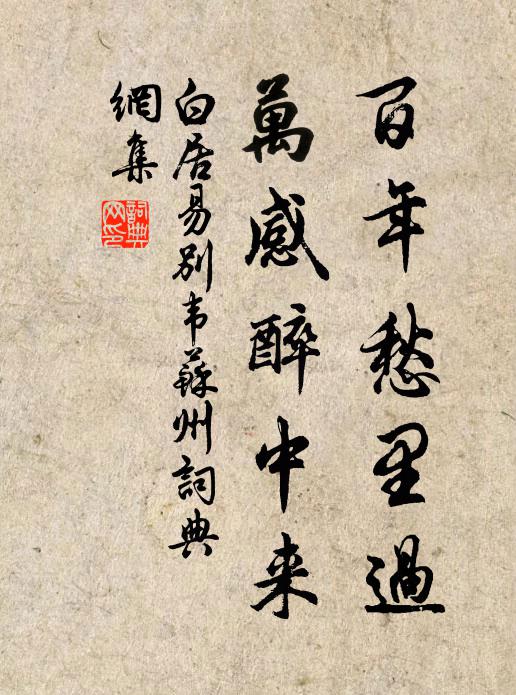 百年愁里過
萬感醉中来
白居易別韦蘇州詞典
網集
詞典
网印